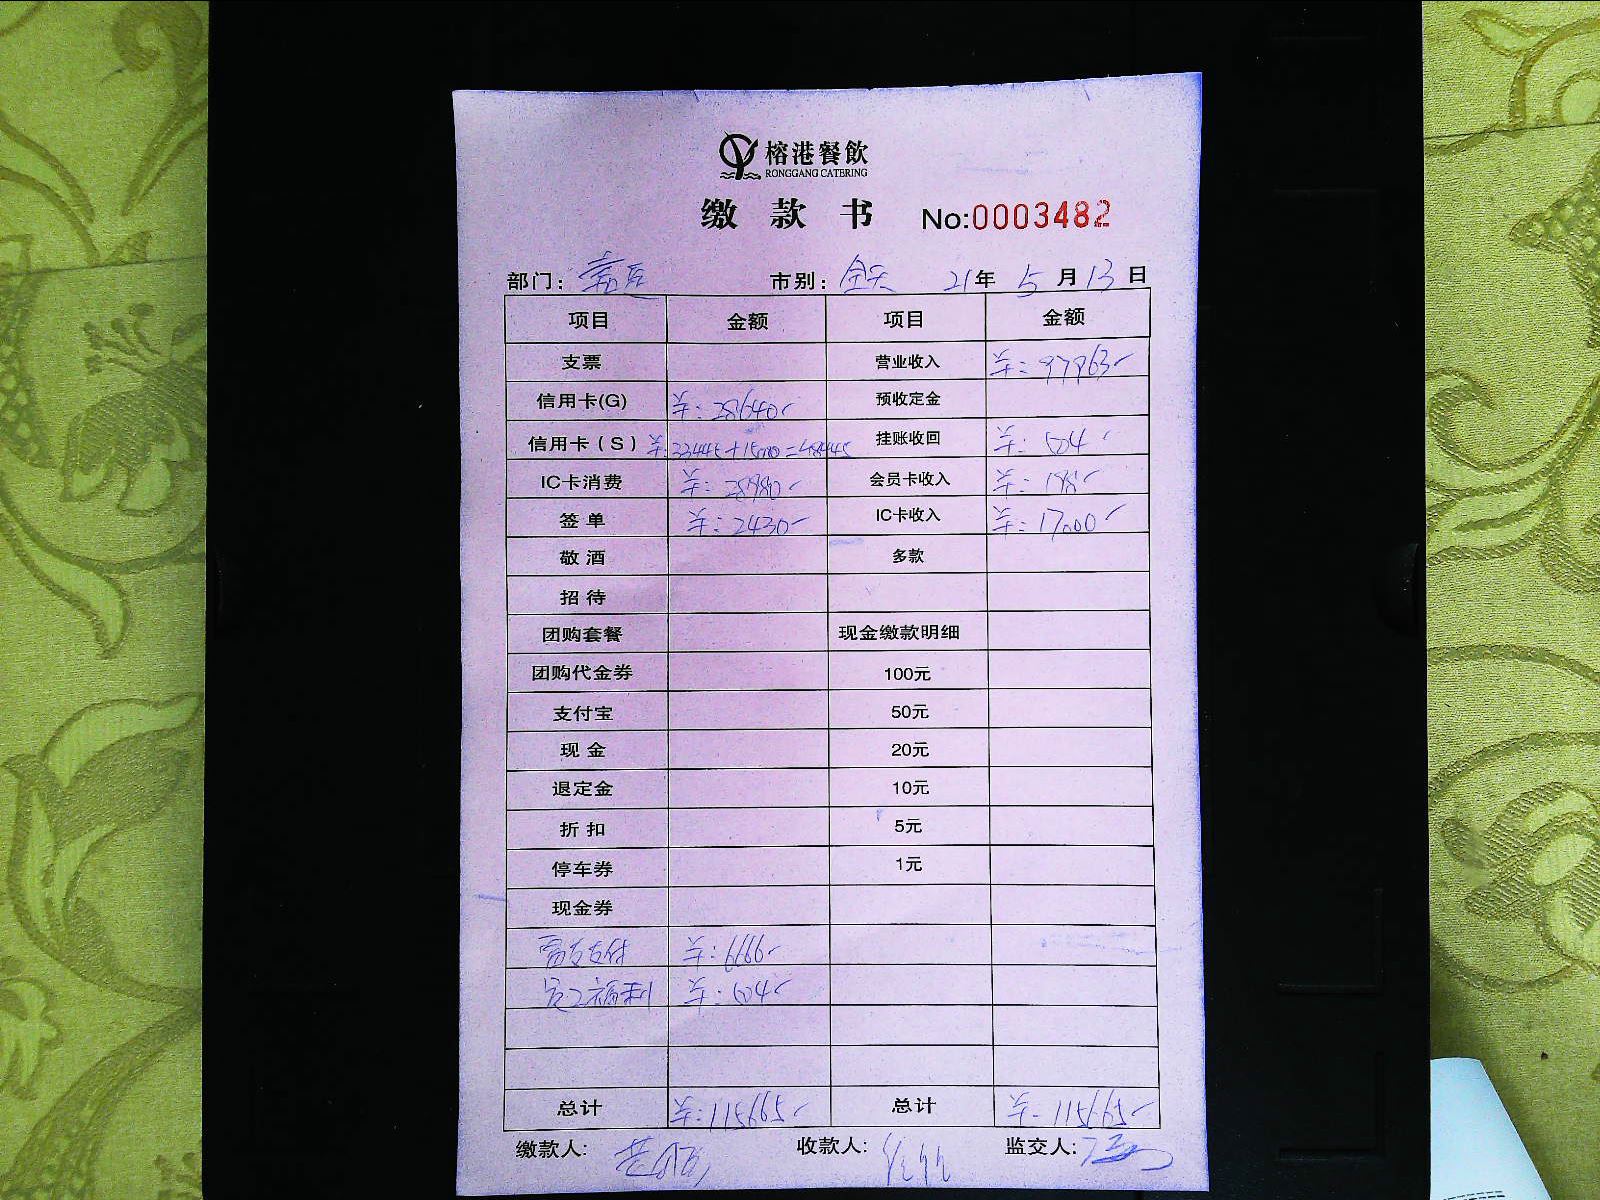 榕港餐飲
RONGGANG CATERING
缴 款 书 No:0003482
部门: 市别: 全天 21年 5月13日
项目 金额 项目 金额
支票 营业收入 97963
信用卡(G) 28640 预收定金
信用卡(S) 33445+15000=48445 挂账收回 504
IC卡消费 28980 会员卡收入 198
签单 2430 IC卡收入 17000
敬酒 多款
招待
团购套餐 现金缴款明细
团购代金券 100元
支付宝 50元
现金 20元
退定金 10元
折扣 5元
停车券 1元
现金券
6666
员工福利 504
总计 115665 总计 115665
缴款人: 收款人: 监交人: